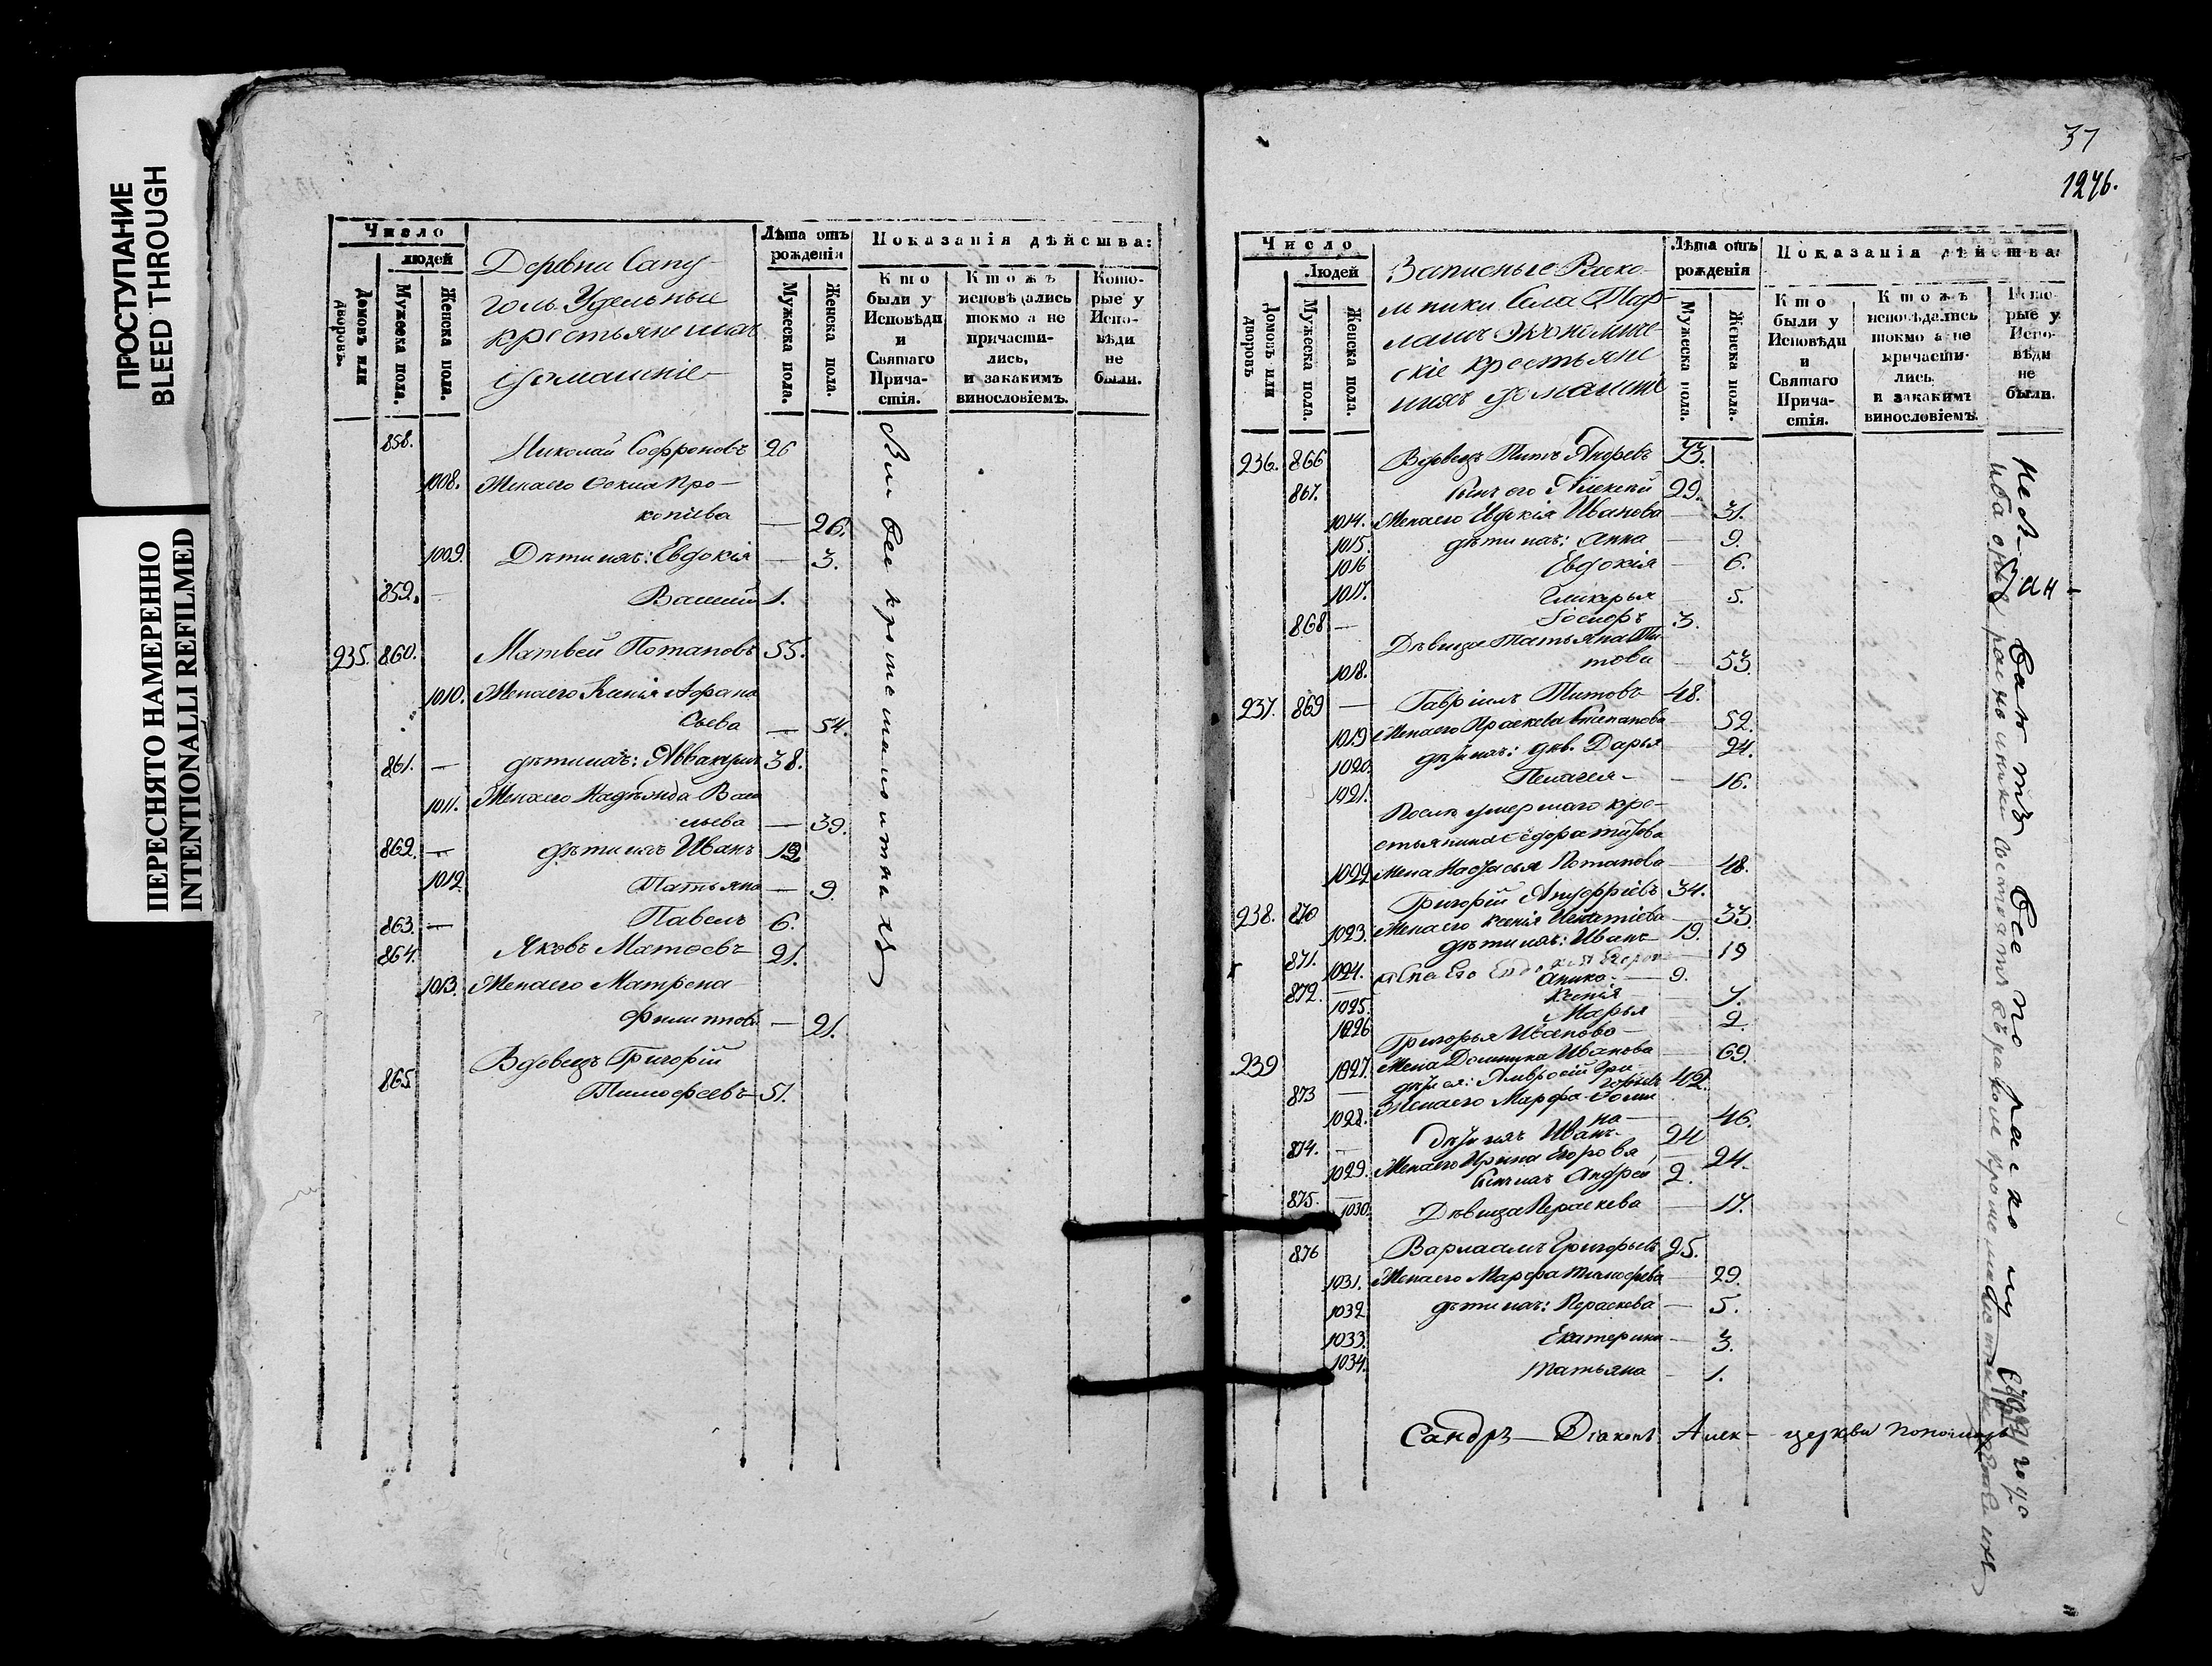 ПРОСТУПАНИЕ
BLEED THROUGH
ПЕРЕСНЯТО НАМЕРЕННО
INTENTIONALLI REFILMED
Число
людей
Домовъ или дворовъ.
Мужеска пола.
Женска пола.
Деревни Сапу-
голь Удельныи
крестьяне ихъ
домашніе
Лѣта отъ рожденія
Мужеска пола.
Женска пола.
Показанія дѣйства:
Кто были у Исповѣди и Святаго Причастія.
Ктожъ исповѣдались токмо а не причастились, и закакимъ винословіемъ.
Которые у Исповѣди не были.
858. Николай Софроновъ 26
1008. Жена его Про-
копіева — 26.
1009. Дѣти ихъ: Евдокія — 3.
859. — Василий 1.
235. 860. Матвей Потаповъ 55.
1010. Жена его Ксенія Афана
сьева — 54.
861. — дѣти ихъ: Аввакумъ 38.
1011. Жена его Надѣжда Васи
льева — 39.
862. — дѣти ихъ Иванъ
1012 Татьяна — 9.
863. — Павелъ 6.
864. Яковъ Матвеевъ 21.
1013. Жена его Матрена
Филиппова — 21.
865 Вдовецъ Григорій
Тимофеевъ 51.
Вси
37
1246.
Число
Людей
Домовъ или дворовъ
Мужеска пола.
Женска пола.
Записные Раско-
льники Села
Экономиче-
скіе крестьяне
ихъ домашні
Лѣта отъ рожденія
Мужеска пола.
Женска пола.
Показанія дѣйства:
Кто были у Исповѣди и Святаго Причастія.
Ктожъ исповѣдались токмо а не причастились. и закакимъ винословіемъ.
Которые у Исповѣди не были.
236. 866 Вдовецъ Титъ Андреевъ 73.
867. Сынъ его Алексѣй 29.
1014. Жена его Евдокія Иванова — 31.
1015. дѣти ихъ: Анна — 9.
1016 Евдокія — 6.
1017. Гликерья 5.
868 — Іосифъ 3.
Дѣвица Татьяна Ти-
1018. това — 53.
237. 869 — Гавріилъ Титовъ 48.
1019 Жена его Праскева Степанова 52.
1020. дѣти ихъ: дѣв. Дарья — 24.
1021. Пелагея — 16.
Послѣ умершаго кре-
стьянина Ѳедора Титова
1022 Жена Настасья Потапова — 48.
238. 870 Григорій Ануфріевъ 34.
1023. Жена его Ксенія Игнатіева — 33.
871. дѣти ихъ: Иванъ 19.
1024. Жена его Евдокія — 19
872. — 9.
1025. Ксенія — 7.
1026 Марья — 2.
Григорья Иванова
239 1027. Жена Домника Иванова — 69.
873 — дѣти ея: Амвросій Гри-
горьевъ 42.
1028. Жена его Марфа
на — 46.
874. — дѣти ихъ Иванъ 24
1029. Жена его Ирина Егорова — 24.
875. — Сынъ ихъ Андрей 2.
1030. Дѣвица Параскева — 17.
876 Варлаамъ Григорьевъ 25.
1031. Жена его Марфа Тимофѣева — 29.
1032 дѣти ихъ: Параскева — 5.
1033. Екатерина — 3.
1034. Татьяна — 1.
Сандръ — Діаконъ Алек- церкви